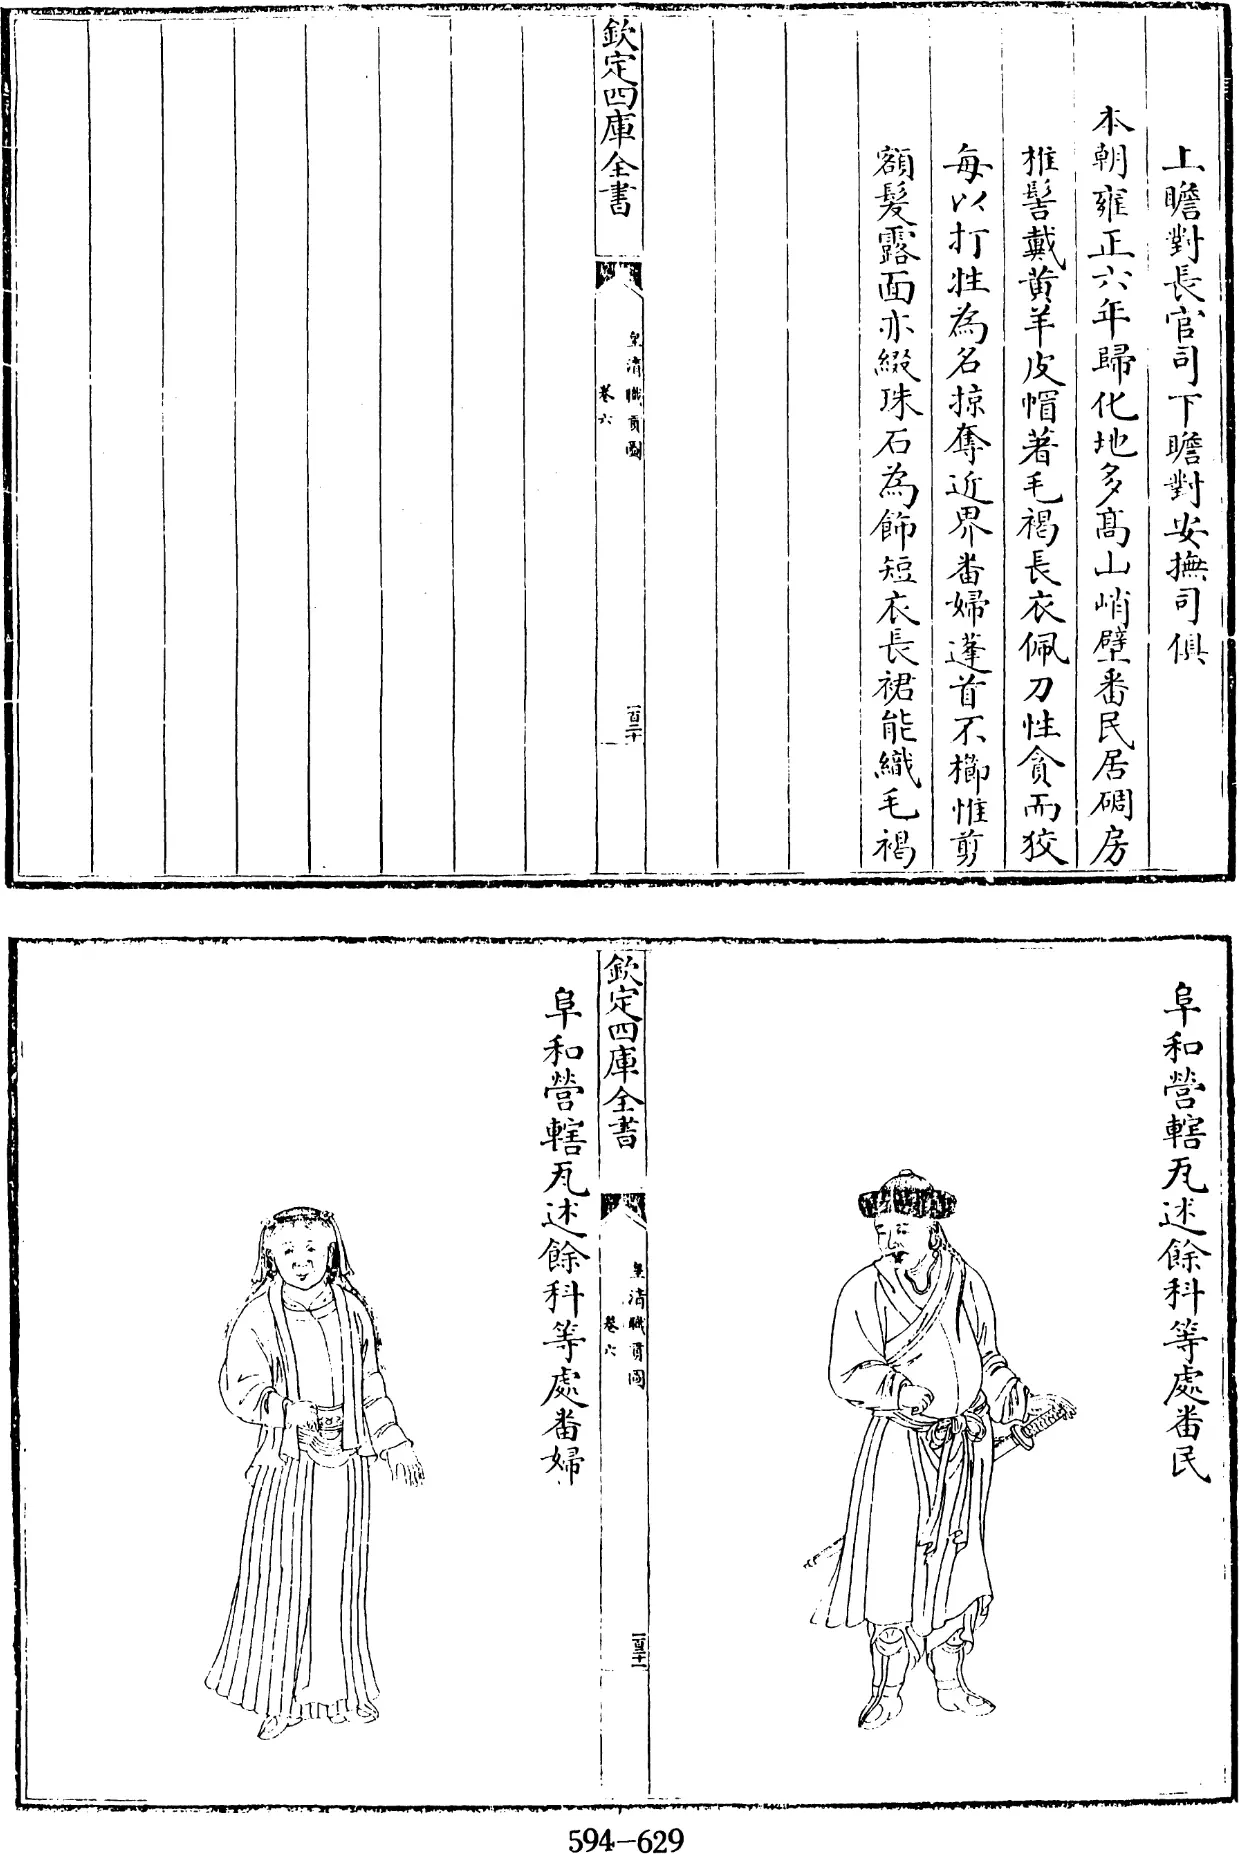 上瞻對長官司下瞻對安撫司俱
本朝雍正六年歸化地多髙山峭壁番民居碉房
椎髻戴黄羊皮帽著毛褐長衣佩刀性貪而狡
每以打牲為名掠奪近界番婦蓬首不櫛惟剪
額髮露面亦綴珠石為飾短衣長裙能織毛褐
欽定四庫全書
皇清職貢圖
卷六
一百二十
阜和營轄瓦述餘科等處番民
欽定四庫全書
皇清職貢圖
卷六
一百二十一
阜和營轄瓦述餘科等處番婦
594-629